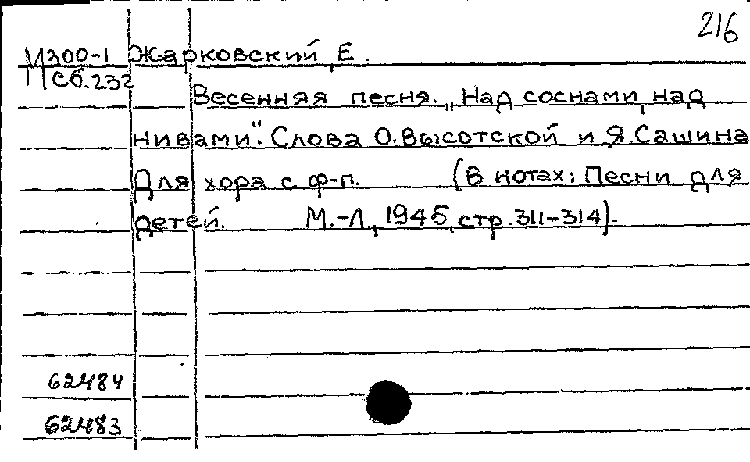 216
М300-1 Жарковский, Е.
Сб.232
Весенняя песня. „Над соснами, над
нивами". Слова О.Высотской и Я.Сашина
Для хора с ф-п. (В нотах: Песни для
детей. М.-Л., 1945, стр. 311-314).
62484
62483